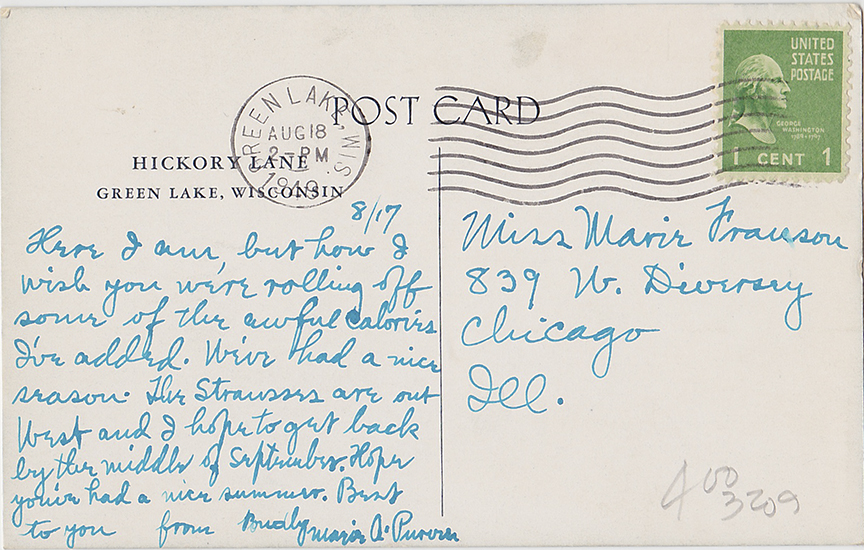 UNITED
STATES
POSTAGE
GEORGE
WASHINGTON
1789-1797
1 CENT 1
GREEN LAKE, WIS.
AUG 18
2-PM
1949
POST CARD
HICKORY LANE
GREEN LAKE, WISCONSIN
8/17
Here I am, but how I
wish you were rolling off
some of the awful calories
I've added. We've had a nice
season. The Strausses are out
West and I hope to get back
by the middle of September. Hope
you've had a nice summer. Best
to you from
Miss Marie Franson
839 W. Diversey
Chicago
Ill.
400
3209